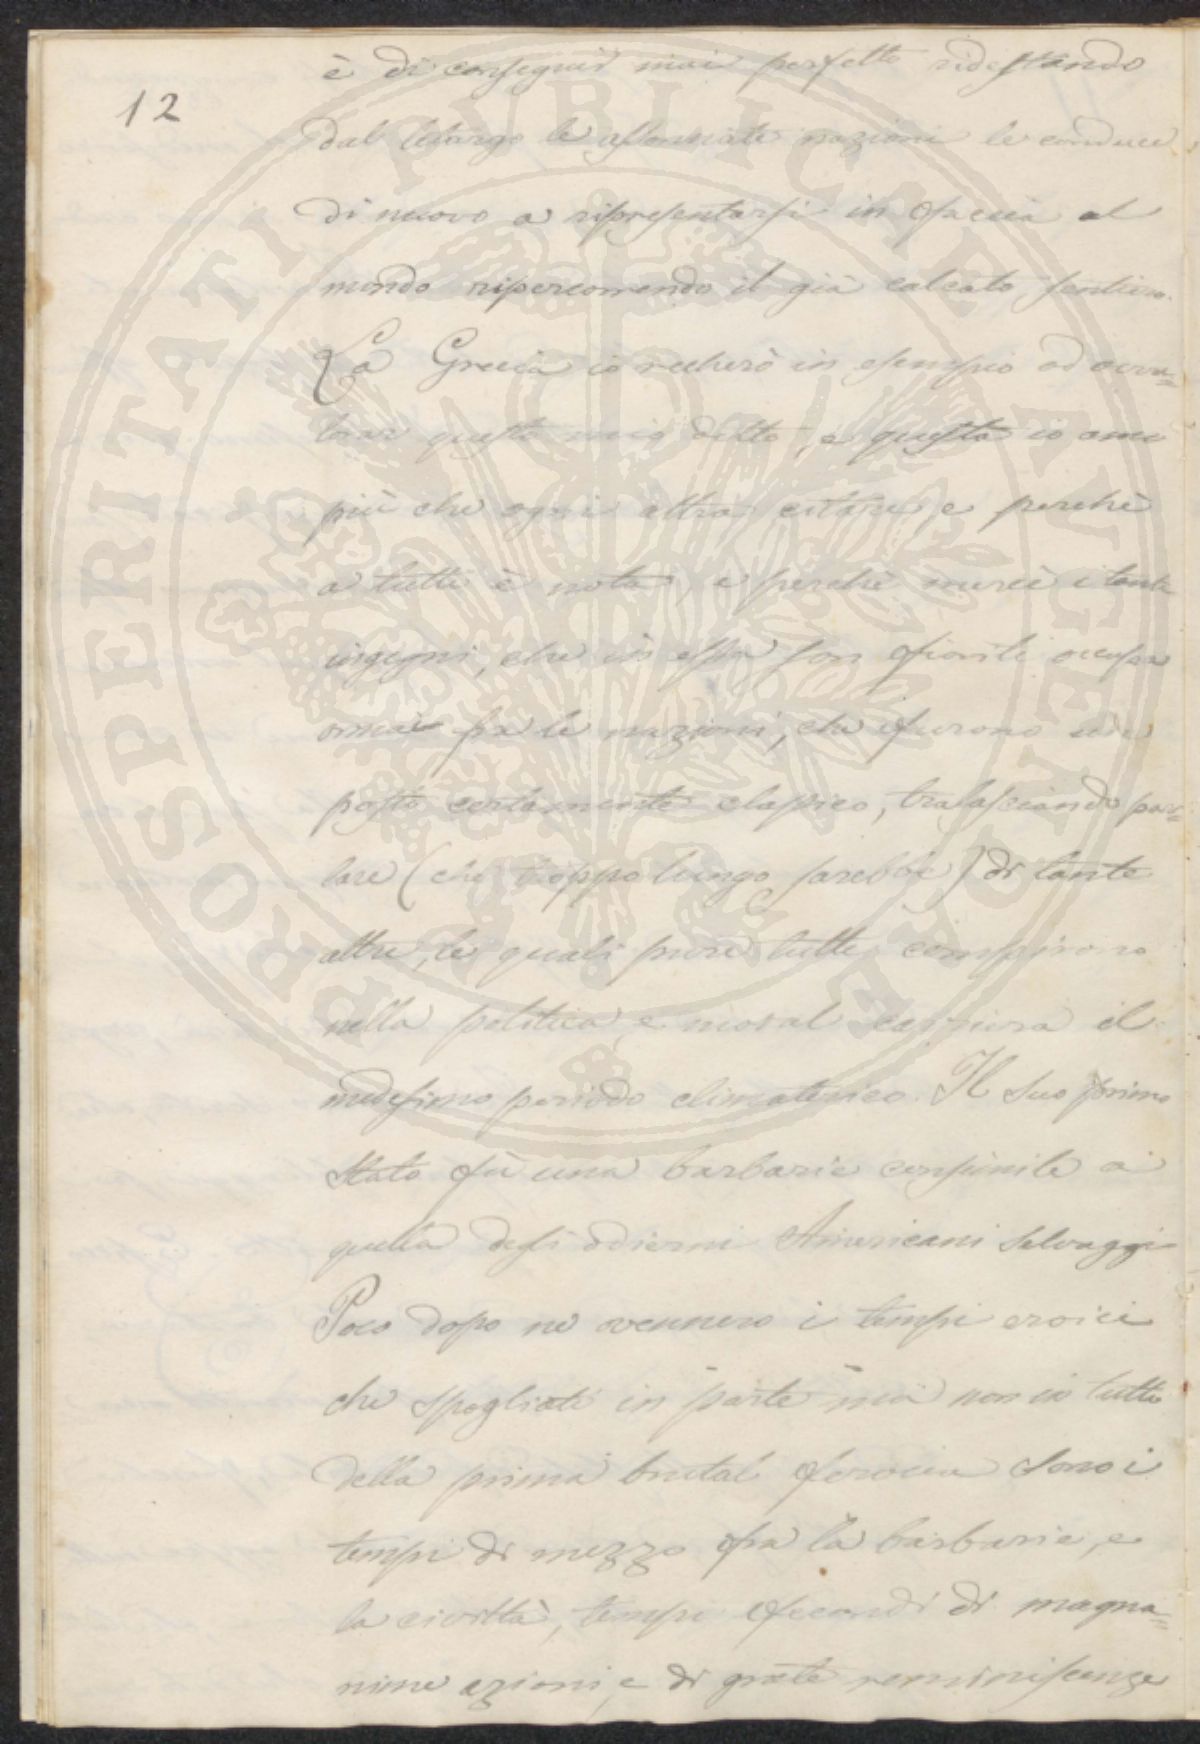 12
è di conseguir mai perfetto ridestando
dal letargo le assonnate nazioni le conduce
di nuovo a ripresentarsi in faccia al
mondo ripercorrendo il già calcato sentiero.
La Grecia io recherò in esempio ad avva=
lorar questo mio detto, e questa io amo
più che ogni altra citare, e perchè
a tutti è nota, e perchè mercè i tanti
ingegni, che in essa son fioriti occupa
ormai fra le nazioni, che furono un
posto certamente classico, tralasciando par=
lare (che troppo lungo sarebbe) di tante
altre, le quali pure tutte compirono
nella politica, e moral carriera il
medesimo periodo climaterico. Il suo primo
stato fù una barbarie consimile a
quella degli odierni Americani selvaggi
Poco dopo ne vennero i tempi eroici
che spogliati in parte mà non in tutto
della prima brutal ferocia sono i
tempi di mezzo fra la barbarie, e
la civiltà, tempi fecondi di magna=
nime azioni, e di grate reminiscenze
PROSPERITATI PUBLICAE AUGENDAE